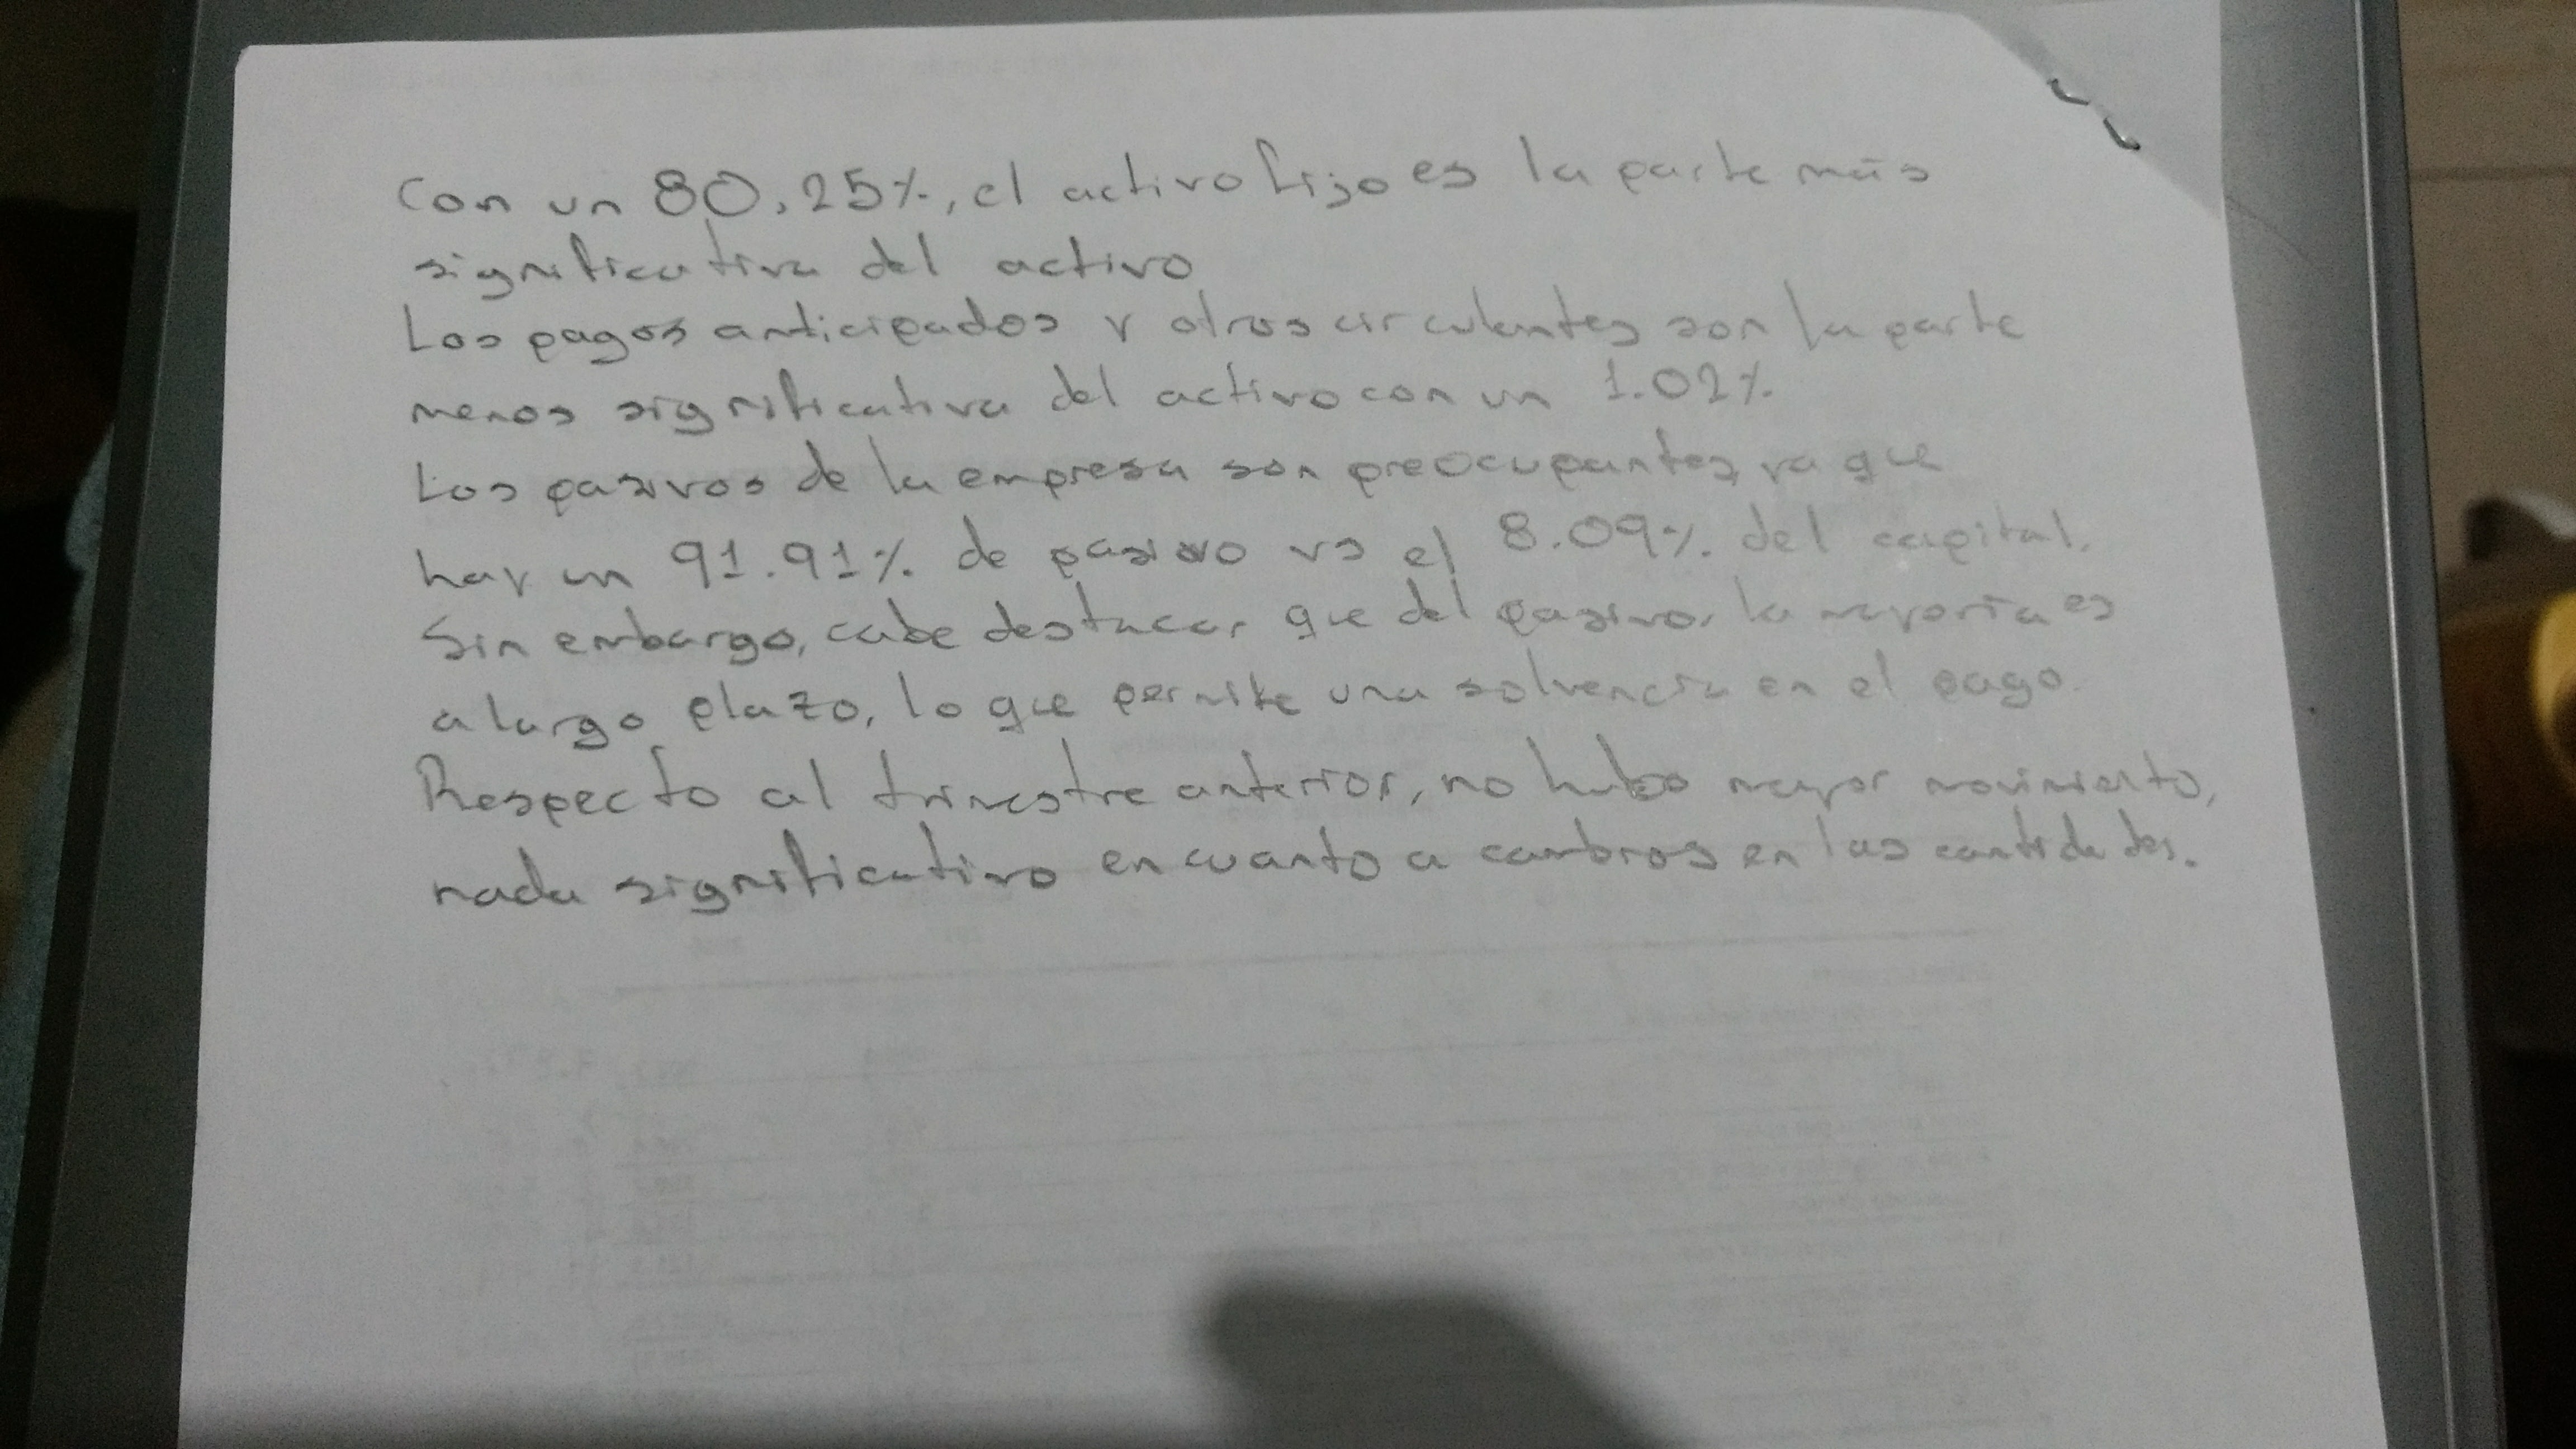 Con un 80.25%, el activo fijo es la parte más
significativa del activo
Los pagos anticipados y otros circulantes son la parte
menos significativa del activo con un 1.02%
Los pasivos de la empresa son preocupantes, ya que
hay un 91.91% de pasivo vs el 8.09% del capital.
Sin embargo, cabe destacar que del pasivo, la mayoría es
a largo plazo, lo que permite una solvencia en el pago.
Respecto al trimestre anterior, no hubo mayor movimiento,
nada significativo en cuanto a cambios en las cantidades.